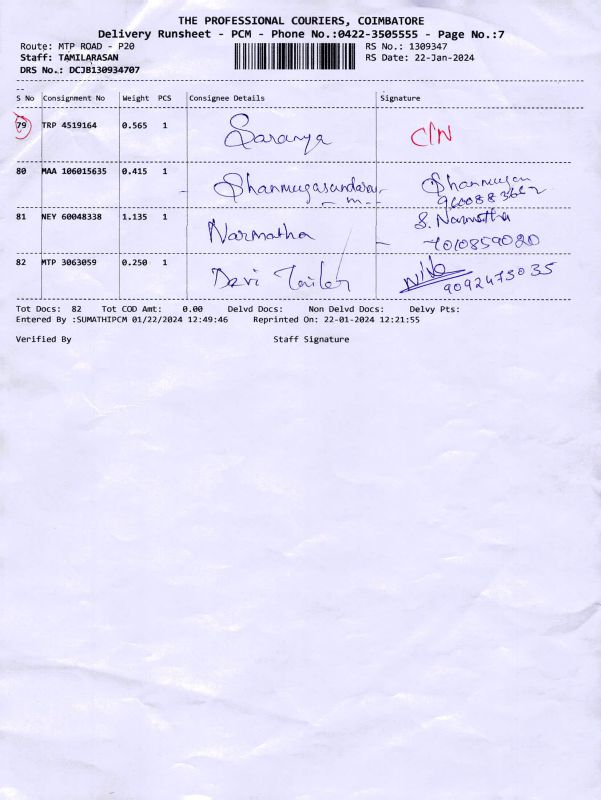 THE PROFESSIONAL COURIERS, COIMBATORE
Delivery Runsheet - PCM - Phone No.:0422-3505555 - Page No.:7
Route: MTP ROAD - P20 RS No.: 1309347
Staff: TAMILARASAN RS Date: 22-Jan-2024
DRS No.: DCJB130934707
--
S No Consignment No Weight PCS Consignee Details Signature
79 TRP 4519164 0.565 1 Saranya C/N
80 MAA 106015635 0.415 1 Shanmugasundaram Shanmugam
81 NEY 60048338 1.135 1 Narmatha S. Narmatha
7010859020
82 MTP 3063059 0.250 1 Devi Tailor
9092475035
Tot Docs: 82 Tot COD Amt: 0.00 Delvd Docs: Non Delvd Docs: Delvy Pts:
Entered By :SUMATHIPCM 01/22/2024 12:49:46 Reprinted On: 22-01-2024 12:21:55
Verified By Staff Signature